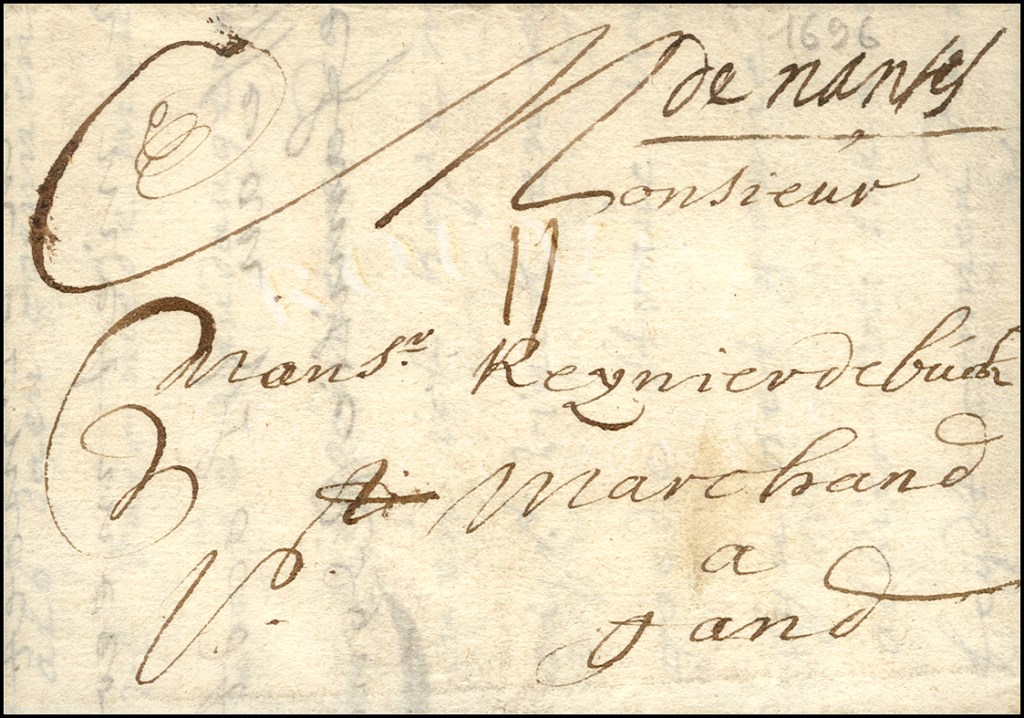 1696
de nantes
Monsieur
Monsr. Reynier de
Marchand
a
Gand